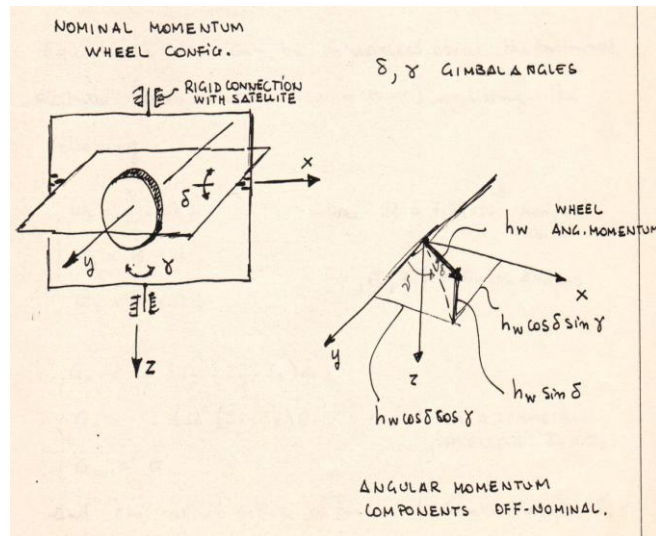 NOMINAL MOMENTUM
WHEEL CONFIG.
RIGID CONNECTION
WITH SATELLITE
δ, γ GIMBAL ANGLES
X
δ
y
γ
Z
WHEEL
hw ANG. MOMENTUM
γ
δ
x
y
z
hw cosδ sin γ
hw sin δ
hw cosδ cos γ
ANGULAR MOMENTUM
COMPONENTS OFF-NOMINAL.